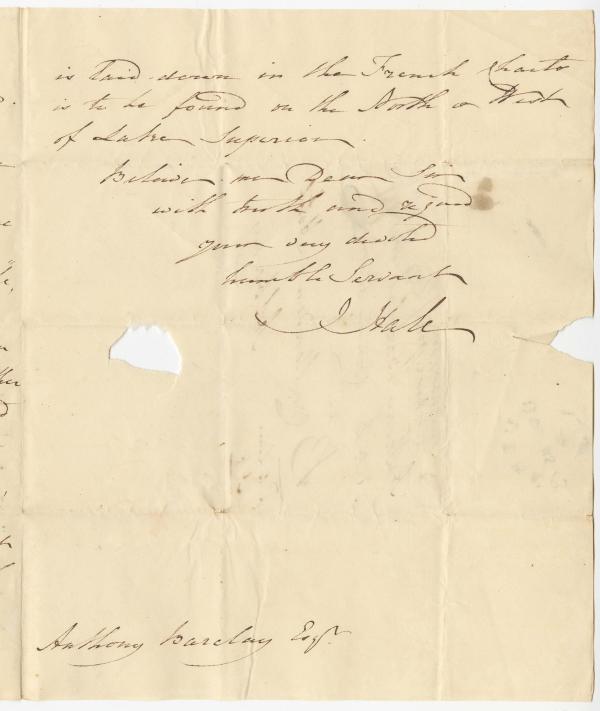 is laid down in the French Charts
is to be found on the North or West
of Lake Superior.
Believe me Dear Sir
with truth and regard
your very devoted
humble Servant
J Hale
Anthony Barclay Esqr.